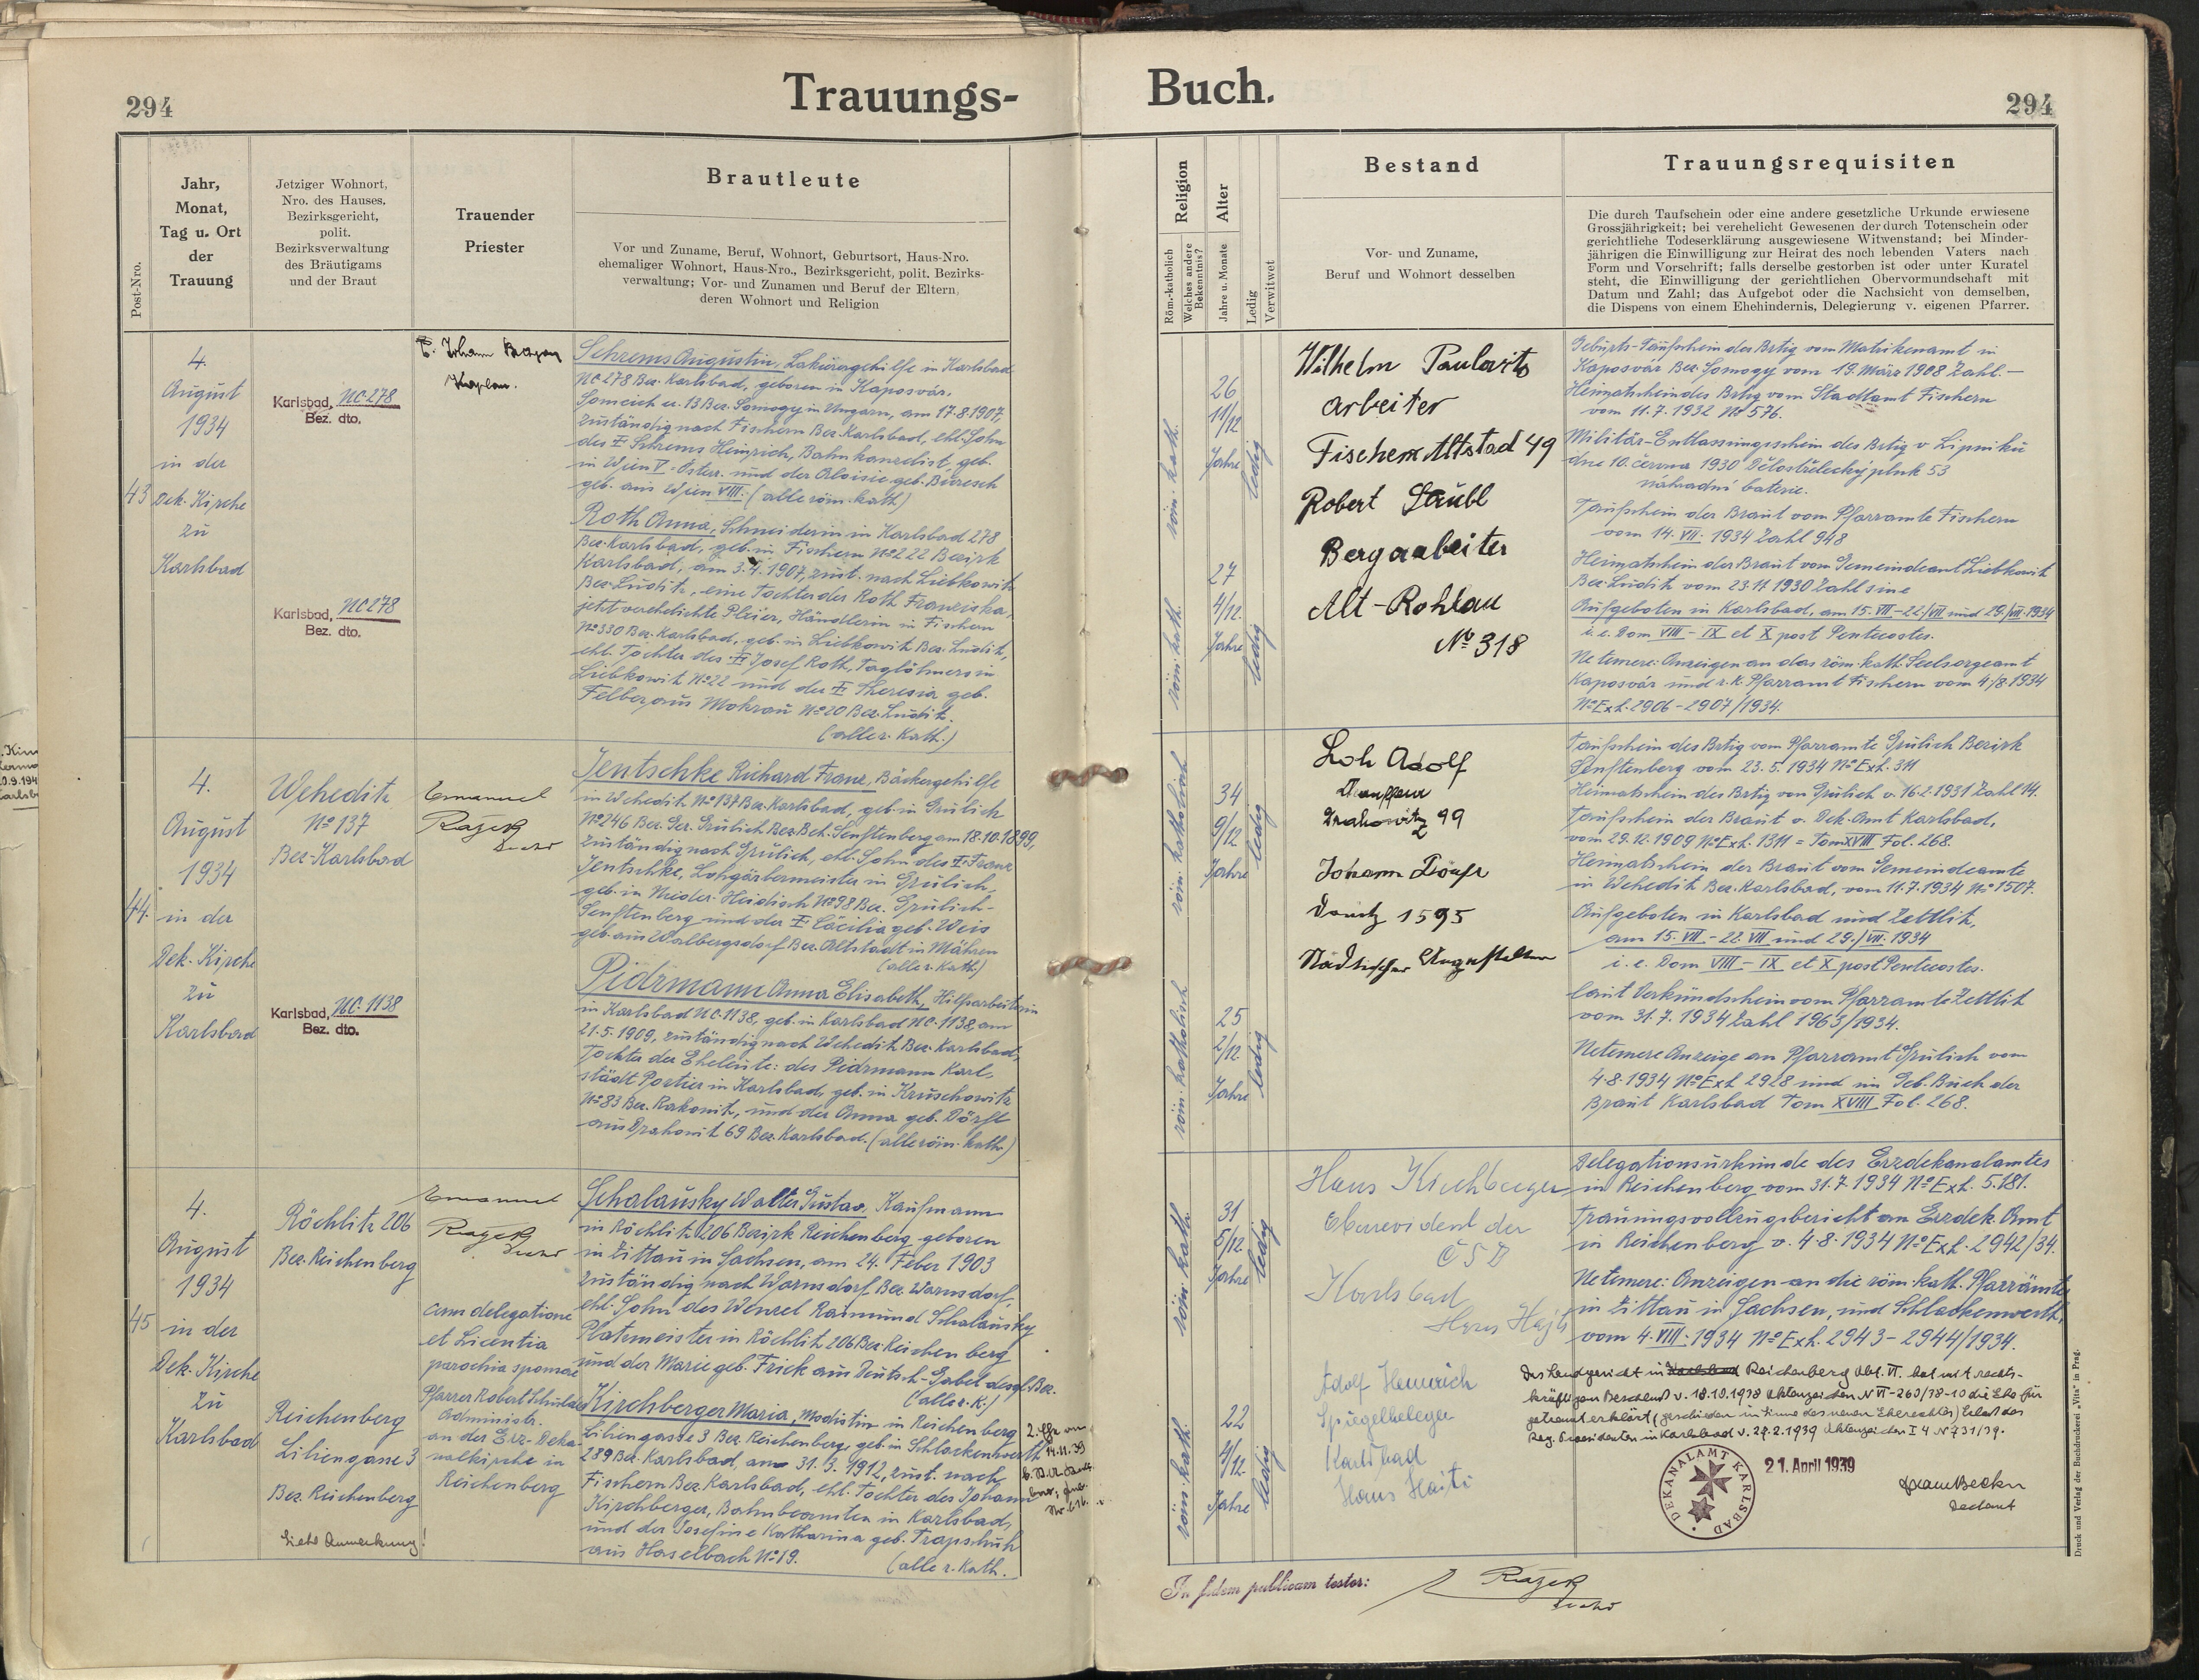 294
Trauungs-
Buch.
294
Post-Nro.
Jahr,
Monat,
Tag u. Ort
der
Trauung
Jetziger Wohnort,
Nro. des Hauses,
Bezirksgericht,
polit.
Bezirksverwaltung
des Bräutigams
und der Braut
Trauender
Priester
Brautleute
Vor und Zuname, Beruf, Wohnort, Geburtsort, Haus-Nro.
ehemaliger Wohnort, Haus-Nro., Bezirksgericht, polit. Bezirks-
verwaltung; Vor- und Zunamen und Beruf der Eltern,
deren Wohnort und Religion
Religion
Röm.-katholisch
Welches andere
Bekenntnis?
Alter
Jahre u. Monate
Ledig
Verwitwet
Bestand
Vor- und Zuname,
Beruf und Wohnort desselben
Trauungsrequisiten
Die durch Taufschein oder eine andere gesetzliche Urkunde erwiesene
Grossjährigkeit; bei verehelicht Gewesenen der durch Totenschein oder
gerichtliche Todeserklärung ausgewiesene Witwenstand; bei Minder-
jährigen die Einwilligung zur Heirat des noch lebenden Vaters nach
Form und Vorschrift; falls derselbe gestorben ist oder unter Kuratel
steht, die Einwilligung der gerichtlichen Obervormundschaft mit
Datum und Zahl; das Aufgebot oder die Nachsicht von demselben,
die Dispens von einem Ehehindernis, Delegierung v. eigenen Pfarrer.
43
4.
August
1934
in der
Dek. Kirche
zu
Karlsbad
Karlsbad, NC 278
Bez. dto.
Karlsbad, NC 278
Bez. dto.
Johann
Kaplan.
Schrems Augustin, Lakierergehilfe in Karlsbad
NC 278 Bez. Karlsbad, geboren in Kaposvár,
u. 13 Bez. Somogy in Ungarn, am 17.8.1907,
zuständig nach Fischern Bez. Karlsbad, ehl. Sohn
des Schrems Heinrich, Bahnkanzelist, geb.
in Wien V. Öster. und der Aloisie geb. Buresch
geb. aus Wien VIII. (alle röm. kath)
Roth Anna, Schneiderin in Karlsbad 278
Bez. Karlsbad, geb. in Fischern No 222 Bezirk
Karlsbad, am 3.4.1907, zust. nach Liebkowitz
Bez. Luditz, eine Tochter der Roth Franziska,
jetzt verehelichte Pleier, Händlerin in Fischern
No 330 Bez. Karlsbad, geb. in Liebkowitz Bez. Luditz,
ehl. Tochter des Josef Roth, Taglöhners in
Liebkowitz No 22 und der Theresia geb.
Felber aus Mokrau No 20 Bez. Luditz.
(alle r. Kath.)
röm. kath.
26
11/12
Jahre
ledig
röm. kath.
27
4/12.
Jahre
ledig
Wilhelm Paulavits
Arbeiter
Fischern Altstad 49
Robert Säubl
Bergarbeiter
Alt-Rohlau
No 318
Geburts-Taufschein des Brtig vom Matrikenamt in
Kaposvár Bez. Somogy vom 19. März 1908 Zahl.—
Heimatschein des Brtig vom Stadtamt Fischern
vom 11.7.1932 No 576.
Militär-Entlassungsschein des Brtig v Lipníku
dne 10. června 1930 Dělostřelecký pluk 53
náhradní baterie.
Taufschein der Braut vom Pfarramte Fischern
vom 14. VII. 1934 Zahl 948
Heimatschein der Braut vom Gemeindeamt Liebkowitz
Bez. Luditz vom 23.11 1930 Zahl sine
Aufgeboten in Karlsbad, am 15. VII - 22./VII und 29./VII. 1934
i. e. Dom VIII - IX et X post Pentecostes.
Ne temere: Anzeigen an das röm. kath. Seelsorgeamt
Kaposvár und r. k. Pfarramt Fischern vom 4/8.1934
No Exh. 2906-2907/1934.
44.
4.
August
1934
in der
Dek. Kirche
zu
Karlsbad
Weheditz
No 137
Bez. Karlsbad
Karlsbad, NC. 1138
Bez. dto.
Emanuel
Jentschke Richard Franz, Bäckergehilfe
in Wehedit No 137 Bez. Karlsbad, geb. in Grulich
No 246 Bez. Ger. Grulich Bez. Beh. Senftenberg am 18.10.1899,
zuständig nach Grulich, ehl. Sohn des Franz
Jentschke, Lohgärbermeister in Grulich,
geb. in Nieder-Heidisch No 98 Bez. Grulich-
Senftenberg und der Cäcilia geb. Weis
geb. aus Walbergsdorf Bez. Altstadt in Mähren
(alle r. kath.)
Pidrmann Anna Elisabeth, Hilfsarbeiterin
in Karlsbad NC. 1138, geb. in Karlsbad NC. 1138, am
21.5.1909, zuständig nach Wehedit Bez. Karlsbad,
Tochter der Eheleute: des Pidrmann Karl,
städt Portier in Karlsbad, geb. in Kruschowitz
No 83 Bez. Rakonitz, und der Anna geb. Dörfl
aus Drahowit 69 Bez. Karlsbad. (alle röm. kath.)
röm. katholisch
34
9/12
Jahre
ledig
röm. katholisch
25
2/12.
Jahre
ledig
Loh Adolf
Chauffeur
Drahowitz 99
Johann
1595
Städtischer Angestellter
Taufschein des Brtig vom Pfarramte Grulich Bezirk
Senftenberg vom 23.5.1934 No Exh. 311
Heimatschein des Brtig von Grulich v. 16.2.1931 Zahl 14.
Taufschein der Braut v. Dek. Amt Karlsbad,
vom 29.12.1909 No Exh. 1311 = Tom XVIII Fol. 268.
Heimatschein der Braut vom Gemeindeamte
in Wehedit Bez. Karlsbad, vom 11.7.1934 No 1507.
Aufgeboten in Karlsbad und Zettlitz,
am 15. VII - 22. VII und 29./VII. 1934
i. e. Dom VIII - IX et X post Pentecostes.
laut Verkündschein vom Pfarramte Zettlit
vom 31.7.1934 Zahl 1963/1934.
Ne temere Anzeige an Pfarramt Grulich vom
4.8.1934 No Exh 2928 und im Geb. Buch der
Braut Karlsbad Tom XVIII Fol. 268.
45
4.
August
1934
in der
Dek. Kirche
zu
Karlsbad
Röchlitz 206
Bez. Reichenberg
Reichenberg
Liliengasse 3
Bez. Reichenberg
Siehe Anmerkung!
Emanuel
cum delegatione
et Licentia
parochia sponsae
Pfarrer Robert
Administr.
an der Erz-Deka-
nalkirche in
Reichenberg
Schalausky Walter Gustav, Kaufmann
in Röchlitz 206 Bezirk Reichenberg geboren
in Zittau in Sachsen, am 24. Feber 1903
zuständig nach Warnsdorf Bez. Warnsdorf,
ehl. Sohn des Wenzel Raimund Schalausky
Platzmeister in Röchlitz 206 Bez. Reichenberg
und der Marie geb. Frick aus Deutsch-Gabel desgl. Bez.
(alle r. K.)
Kirchberger Maria, Modistin in Reichenberg
Liliengasse 3 Bez. Reichenberg, geb. in Schlackenwerth
289 Bez. Karlsbad, am 31.3.1912, zust. nach
Fischern Bez. Karlsbad, ehl. Tochter des Johann
Kirchberger, Bahnbeamten in Karlsbad,
und der Josefine Katharina geb. Trapschuh
aus Haselbach No 19. (alle r. Kath.
2. Ehe am
14.11.39
röm. kath.
31
5/12.
Jahre
ledig
röm. kath.
22
4/12.
Jahre
ledig
Hans Kirchberger
Oberrevident der
ČSD
Karlsbad
Adolf Heinrich
Spiegelbeleger
Karlsbad
Delegationsurkunde des Erzdekanalamtes
in Reichenberg vom 31.7.1934 No Exh. 5.181.
Trauungsvollzugsbericht an Erzdek. Amt
in Reichenberg v. 4.8.1934 No Exh. 2942/34.
Ne temere: Anzeigen an die röm. kath. Pfarrämter
in Zittau in Sachsen, und Schlackenwerth,
vom 4. VIII. 1934 No Exh. 2943-2944/1934.
Das Landgericht in Reichenberg Abt. VI. hat mit rechts-
kräftigen Beschluß v. 18.10.1938 Aktenzeichen N VI-260/38-10 die Ehe für
getrennt erklärt (geschieden im Sinne des neuen Eherechtes) Erlaß des
Reg. Präsidenten in Karlsbad v. 28.2.1939 Aktenzeichen I 4 N 731/39.
DEKANALAMT KARLSBAD
21. April 1939
Dechant
In fidem publicam testor:
Druck und Verlag der Buchdruckerei „Vita" in Prag.